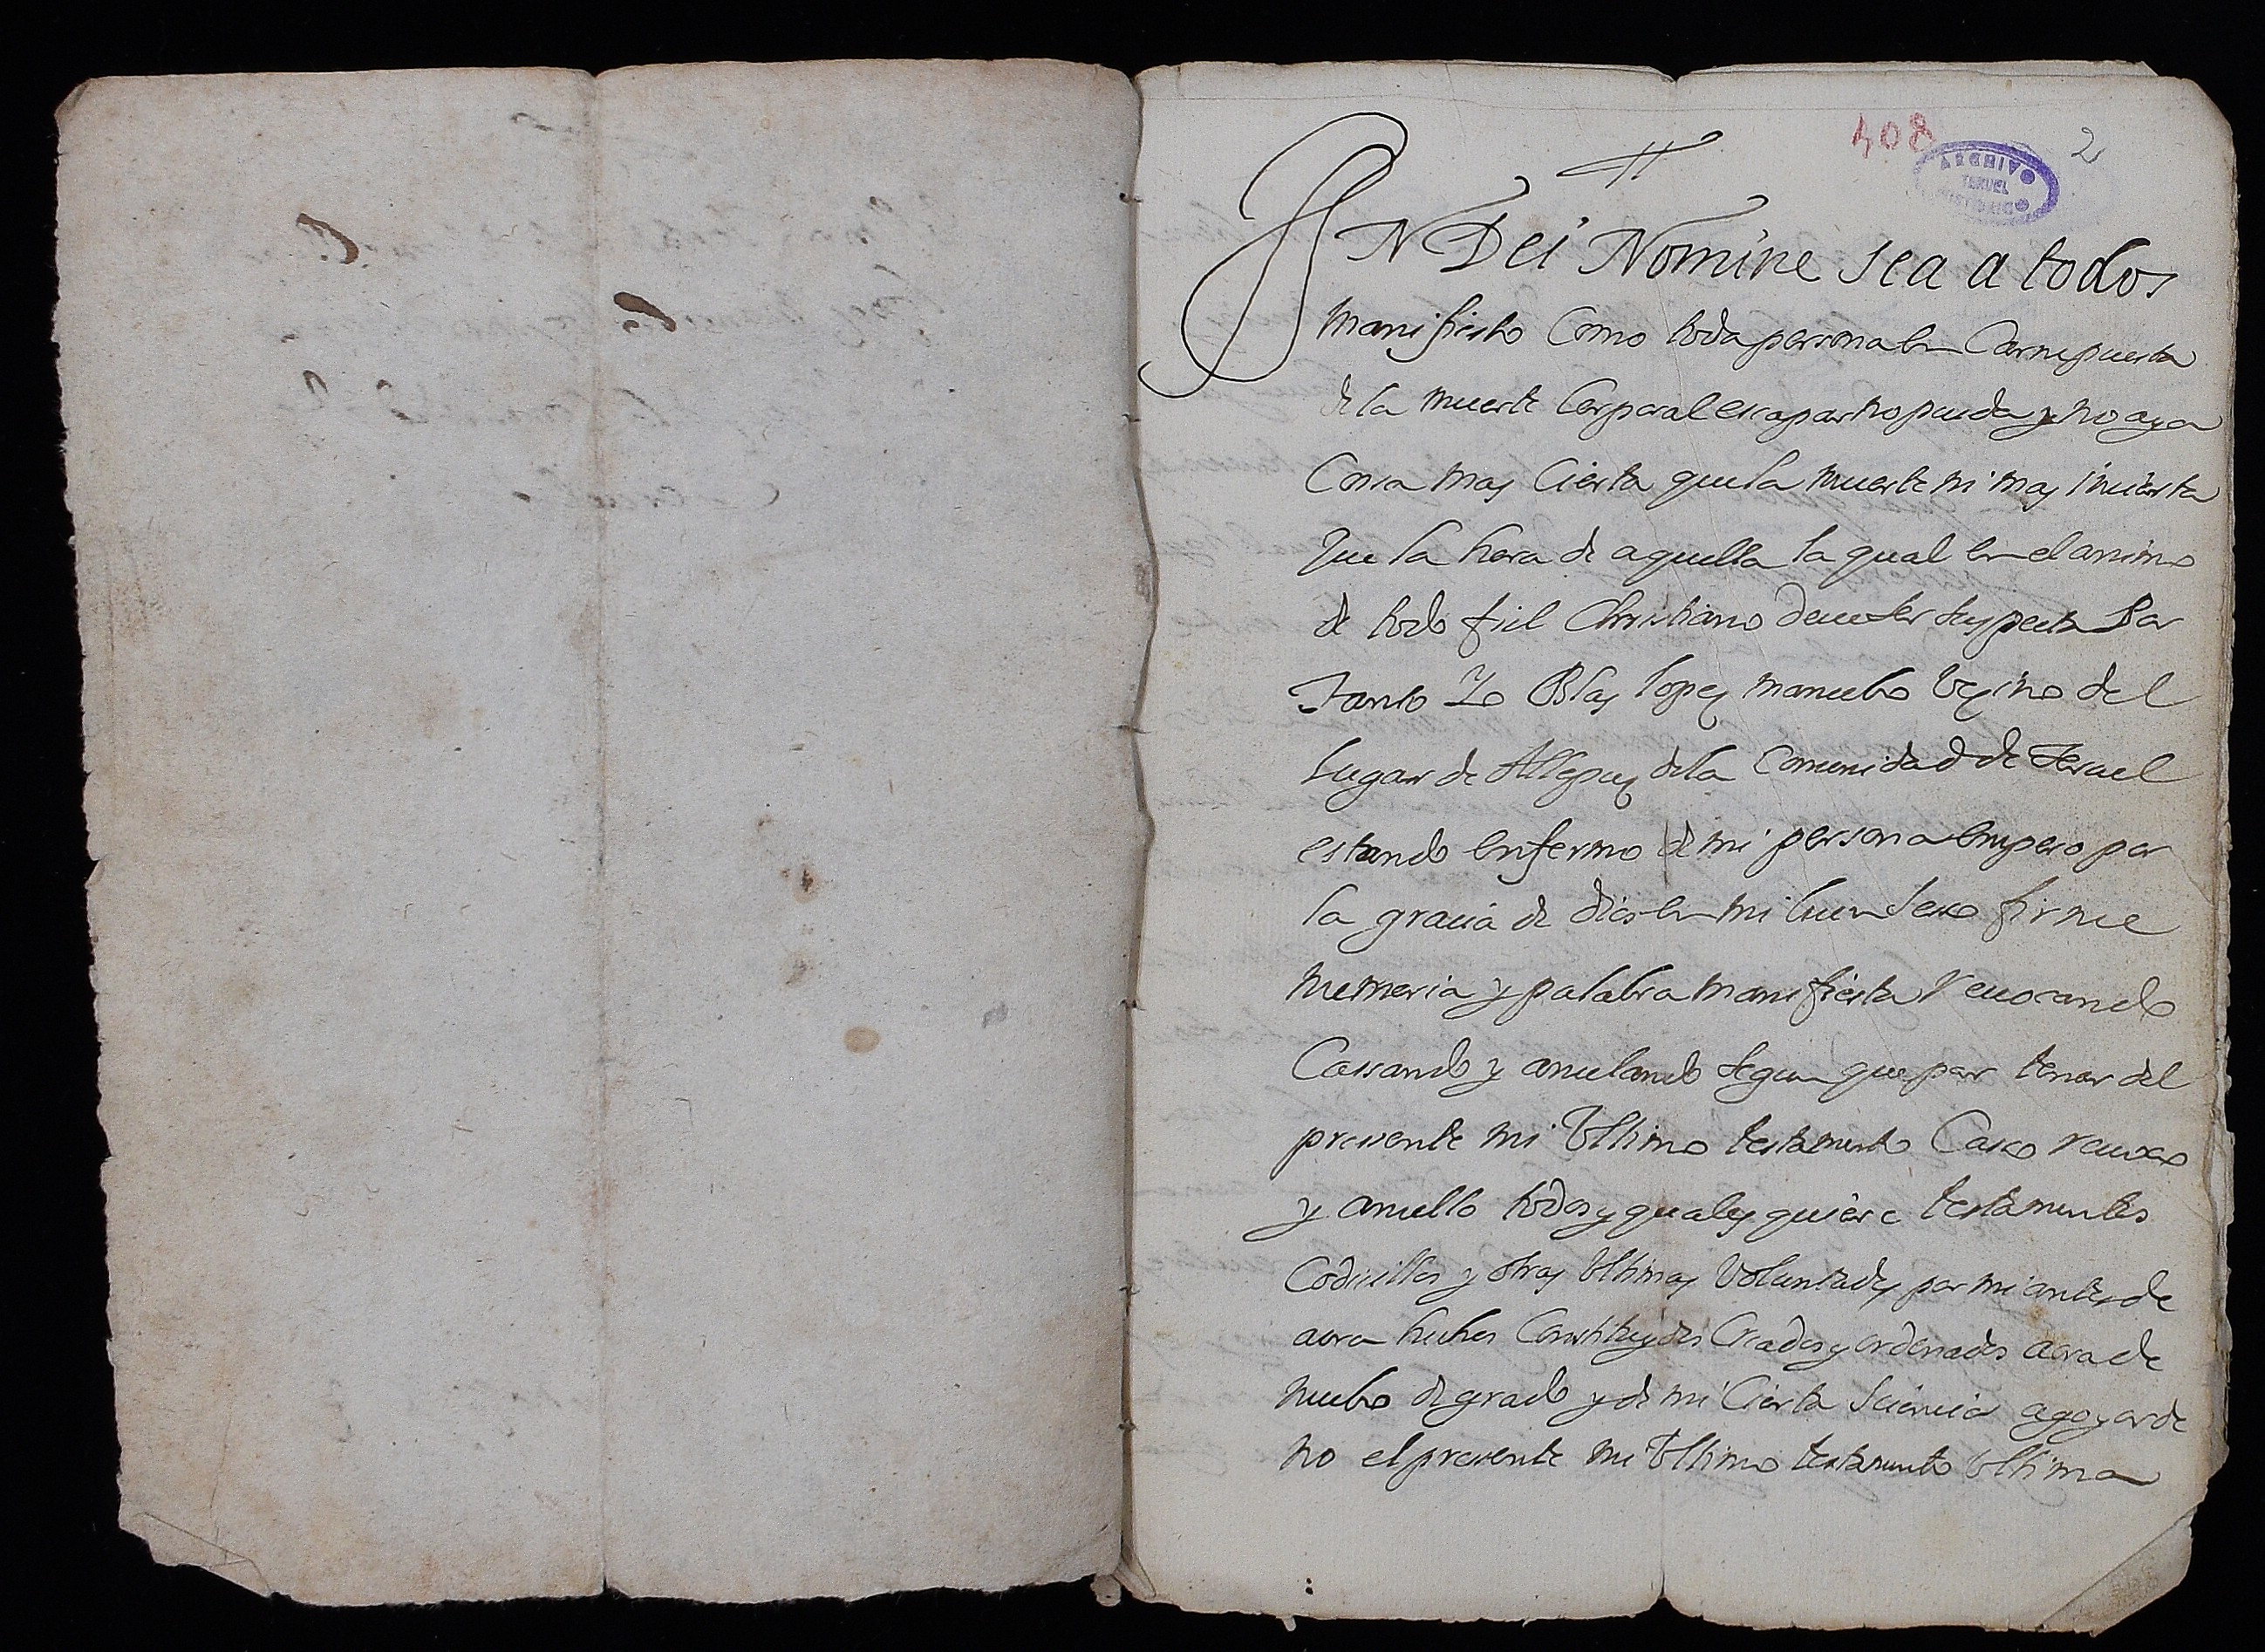 408
2
TERUEL
IN Dei Nomine sea a todos
manifiesto Como toda persona en Carne puesta
de la muerte Corporal escapar no pueda y no aya
Cossa mas Cierta que la muerte ni mas incierta
que la hora de aquella la qual en el animo
de todo fiel Christiano deue ser suspecta Por
tanto Yo Blas lopez mancebo Vezino del
Lugar de Allepuz dela Comunidad de Teruel
estando enfermo de mi persona empero por
la gracia de dios en mi buen seso firme
memoria y palabra manifiesta reuocando
Cassando y anulando segun que por tenor del
pressente mi Vltimo testamento Casso reuoco
y anullo todos y qualesquiere testamentos
Codicillos y otras Vltimas Voluntades por mi antes de
aora hechos Constituydos Creados y ordenados aora de
nuebo de grado y de mi Cierta sciencia ago y orde
no el pressente mi Vltimo testamento Vltima